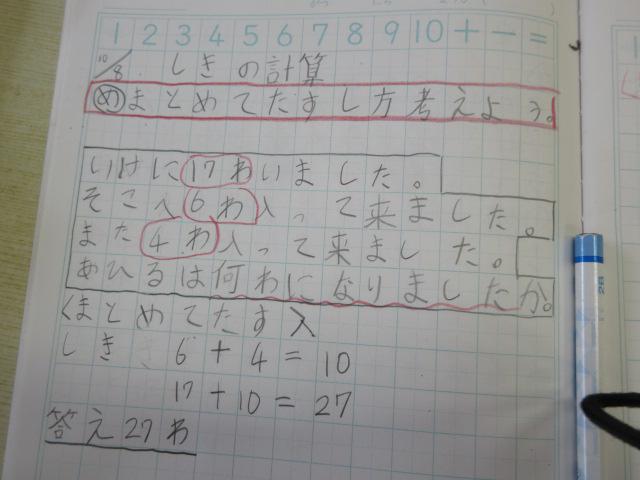 1 2 3 4 5 6 7 8 9 10 + − =
10/8 しきの計算
めまとめてたすし方考えよう。
いけに17わいました。
そこへ6わ入って来ました。
また4わ入って来ました。
あひるは何わになりましたか。
くまとめてたす入
しき 6+4=10
17+10=27
答え27わ